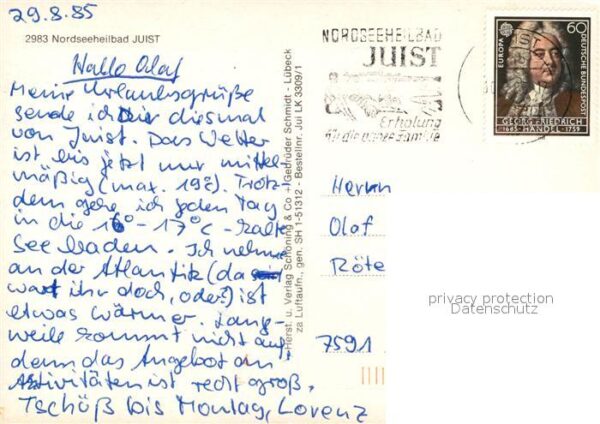 29.8.85
2983 Nordseeheilbad JUIST
Hallo Olaf
Meine Urlaubsgrüße
sende ich Dir diesmal
von Juist. Das Wetter
ist bis jetzt nur mittel-
mäßig (max. 19°C). Trotz-
dem gehe ich jeden Tag
in die 16°-17°C-kalte
See baden. Ich nehme
an der Atlantik (da
wart ihr doch, oder?) ist
etwas wärmer. Lang-
weile kommt nicht auf
denn das Angebot an
Aktivitäten ist recht groß.
Tschüß bis Montag, Lorenz
Herst. u. Verlag Schöning & Co + Gebrüder Schmidt - Lübeck
za Luftaufn., gen. SH 1-51312 - Bestellnr. Jui LK 3309/1
NORDSEEHEILBAD
JUIST
Erholung
für die ganze Familie
60
EUROPA
DEUTSCHE BUNDESPOST
GEORG FRIEDRICH
1685 HÄNDEL 1759
Herrn
Olaf
Röte
7591
privacy protection
Datenschutz